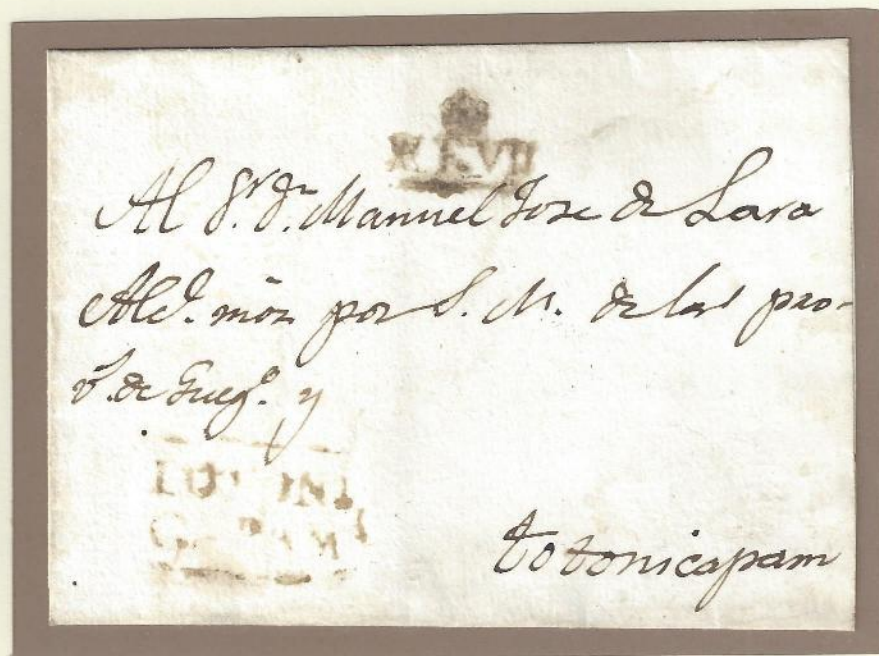 Al Sr. Dn. Manuel Jose de Lara
Alce. mōr por S. M. de las pro-
vs. de Guego. y
TOTONI
totonicapam